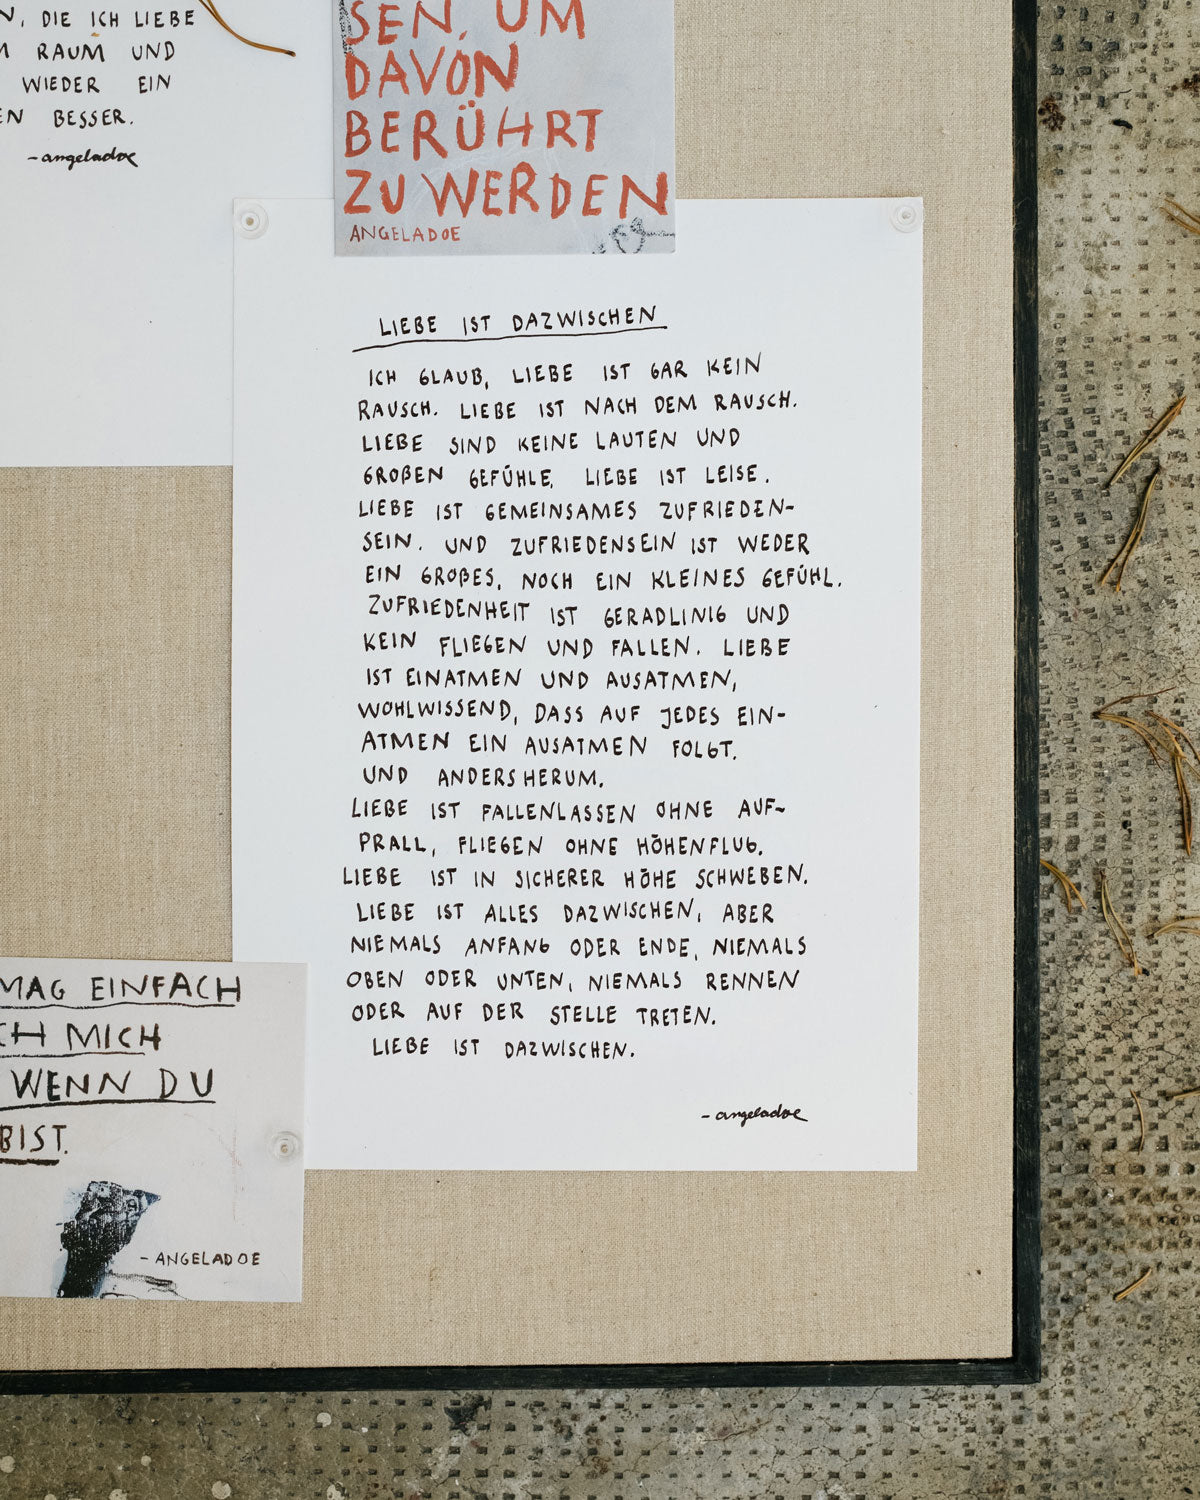 N, DIE ICH LIEBE
M RAUM UND
WIEDER EIN
EN BESSER.
-angeladoe
SEN, UM
DAVON
BERÜHRT
ZU WERDEN
ANGELADOE
LIEBE IST DAZWISCHEN
ICH GLAUB, LIEBE IST GAR KEIN
RAUSCH. LIEBE IST NACH DEM RAUSCH.
LIEBE SIND KEINE LAUTEN UND
GROßEN GEFÜHLE, LIEBE IST LEISE.
LIEBE IST GEMEINSAMES ZUFRIEDEN-
SEIN. UND ZUFRIEDENSEIN IST WEDER
EIN GROßES, NOCH EIN KLEINES GEFÜHL.
ZUFRIEDENHEIT IST GERADLINIG UND
KEIN FLIEGEN UND FALLEN. LIEBE
IST EINATMEN UND AUSATMEN,
WOHLWISSEND, DASS AUF JEDES EIN-
ATMEN EIN AUSATMEN FOLGT.
UND ANDERSHERUM.
LIEBE IST FALLENLASSEN OHNE AUF-
PRALL, FLIEGEN OHNE HÖHENFLUG.
LIEBE IST IN SICHERER HÖHE SCHWEBEN.
LIEBE IST ALLES DAZWISCHEN, ABER
NIEMALS ANFANG ODER ENDE, NIEMALS
OBEN ODER UNTEN, NIEMALS RENNEN
ODER AUF DER STELLE TRETEN.
LIEBE IST DAZWISCHEN.
-angeladoe
MAG EINFACH
CH MICH
WENN DU
BIST.
-ANGELADOE